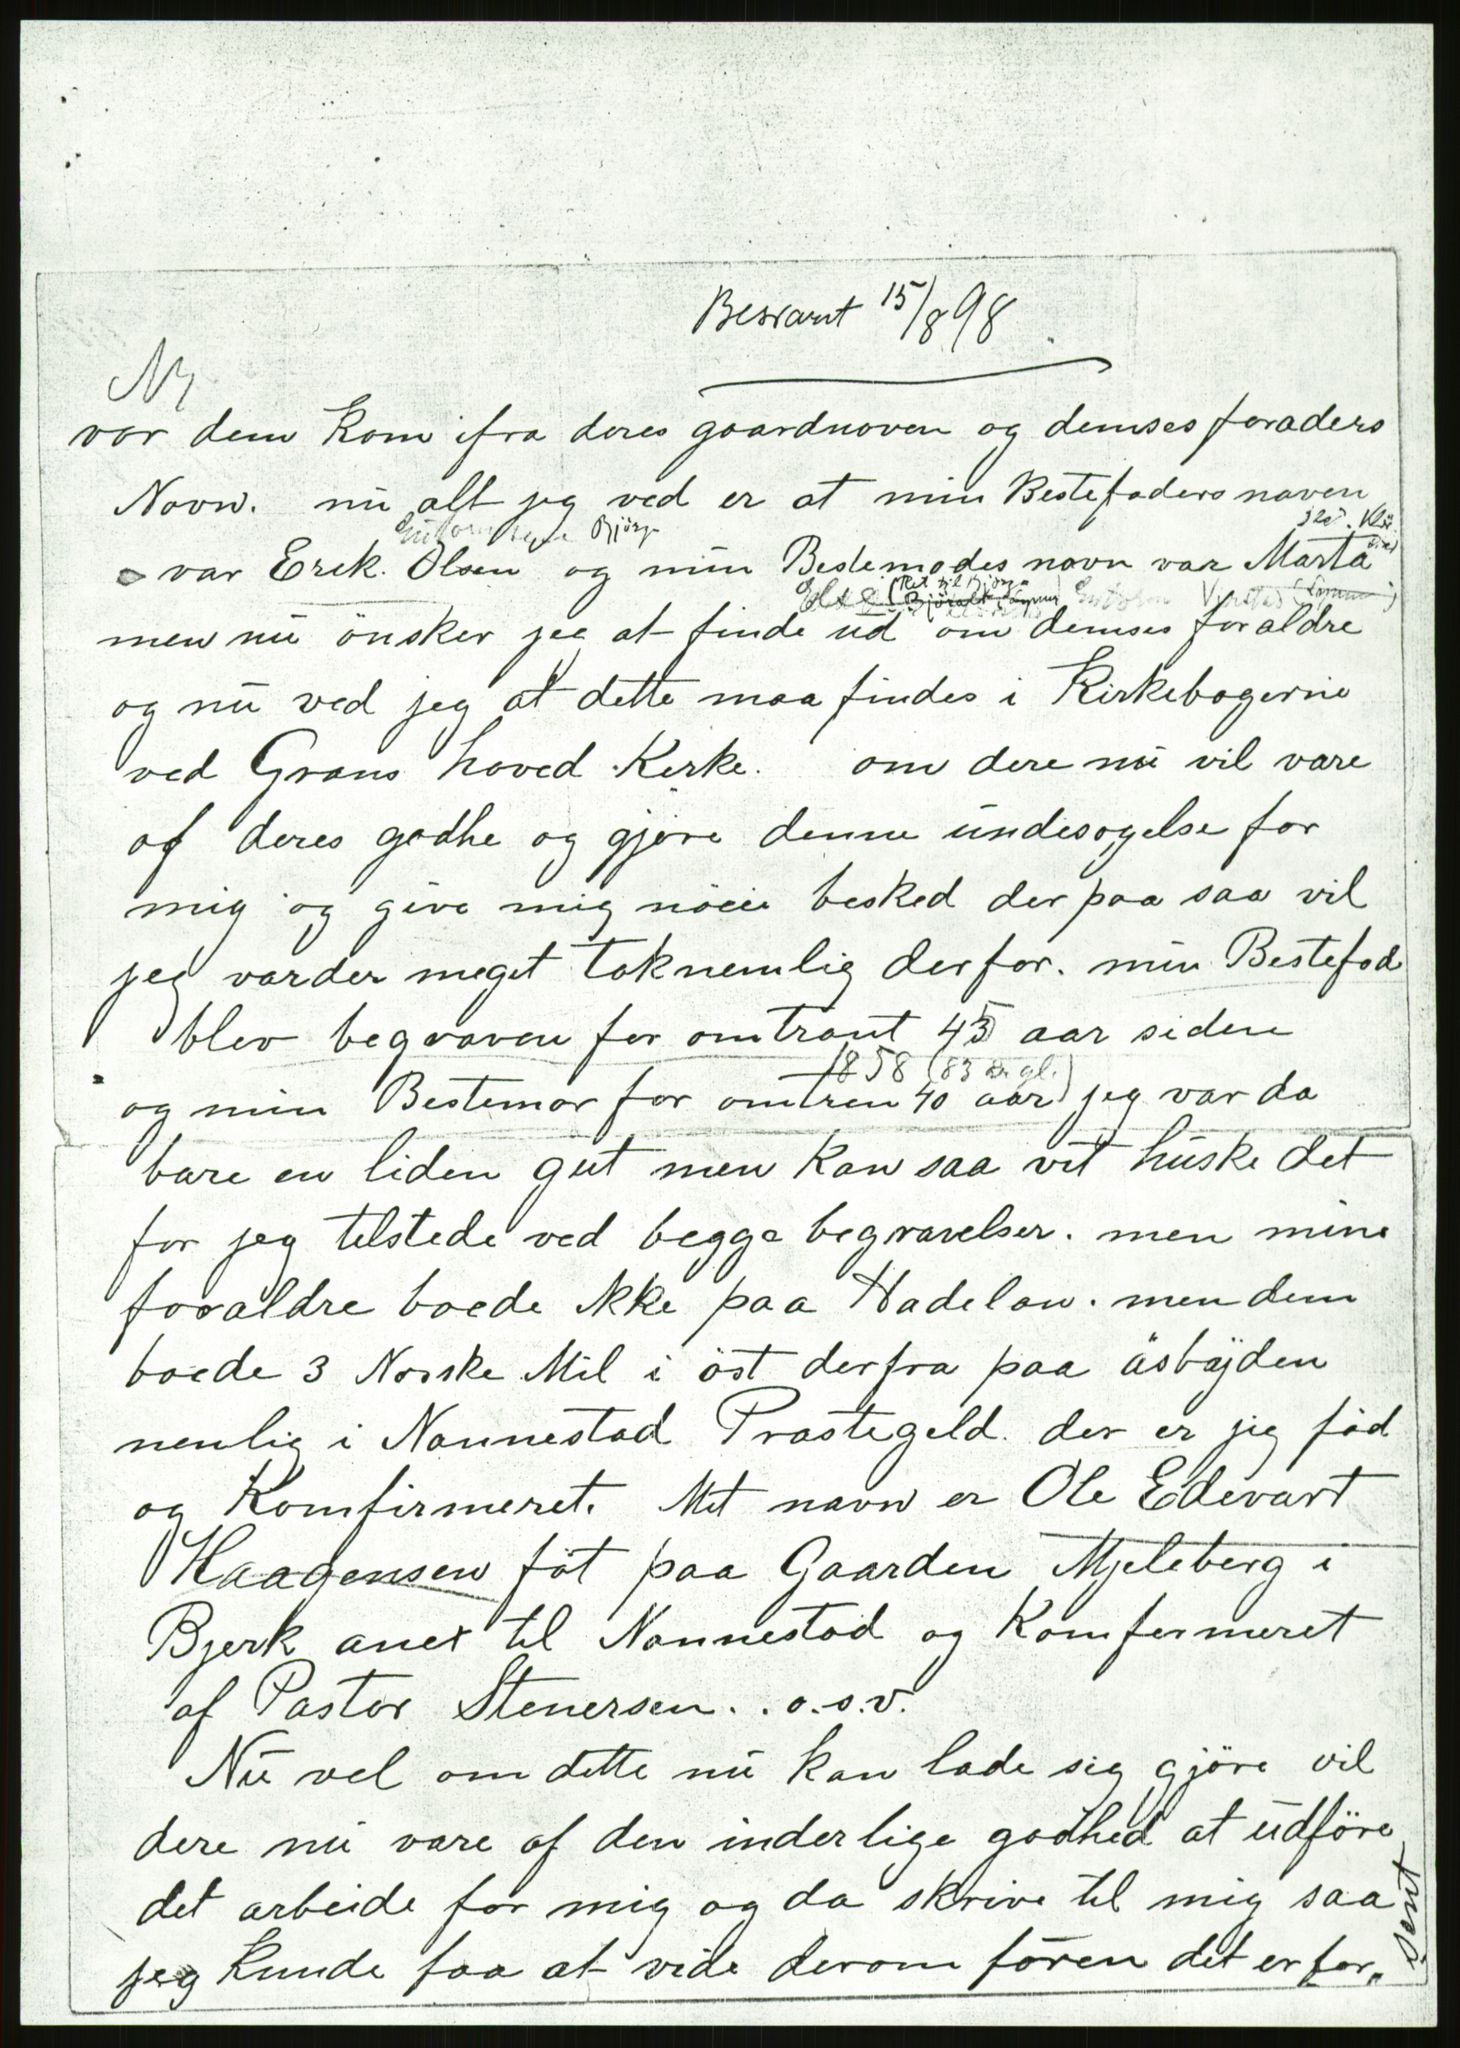 Besvart 15/8 98
vor dem kom ifra deres gaardnoven og demses foraders
Novn. nu alt jeg ved er at min Bestefaders naven
Bjørge
var Erek. Olsen og min Bestemodes navn var Marta
Else
men nu önsker jeg at finde ud om demses foraldre
og nu ved jeg at dette maa findes i Kirkebogerne
ved Grans hoved Kerke. om dere nu vil vare
af deres godhe og gjöre denne undesogelse for
mig og give mig nöeie besked der paa saa vil
jeg varder meget toknemlig derfor. min Bestefad
blev begraven for omtrant 45 aar sidene
1858 (83 år gl.)
og min Bestemor for omtren 40 aar jeg var da
bare en liden gut men kan saa vit huske det
for jeg telstede ved begge begravelser. men mine
foraldre boede ikke paa Hadelan. men dem
boede 3 Norske Mil i öst derfra paa åsbøjden
nemlig i Nannestad Prastegeld. der er jeg föd
og Komfirmeret. Mit navn er Ole Edevart
Haagensen föt paa Gaarden Mjeleberg i
Bjerk anex til Nannestad og Komfermeret
af Pastor Stenersen. . o.s.v.
Nu vel om dette nu kan lade sig gjöre vil
dere nu vare af den inderlige godhed at udföre
det arbeide for mig og da skrive til mig saa
jeg kunde faa at vide derom fören det er for„
sent